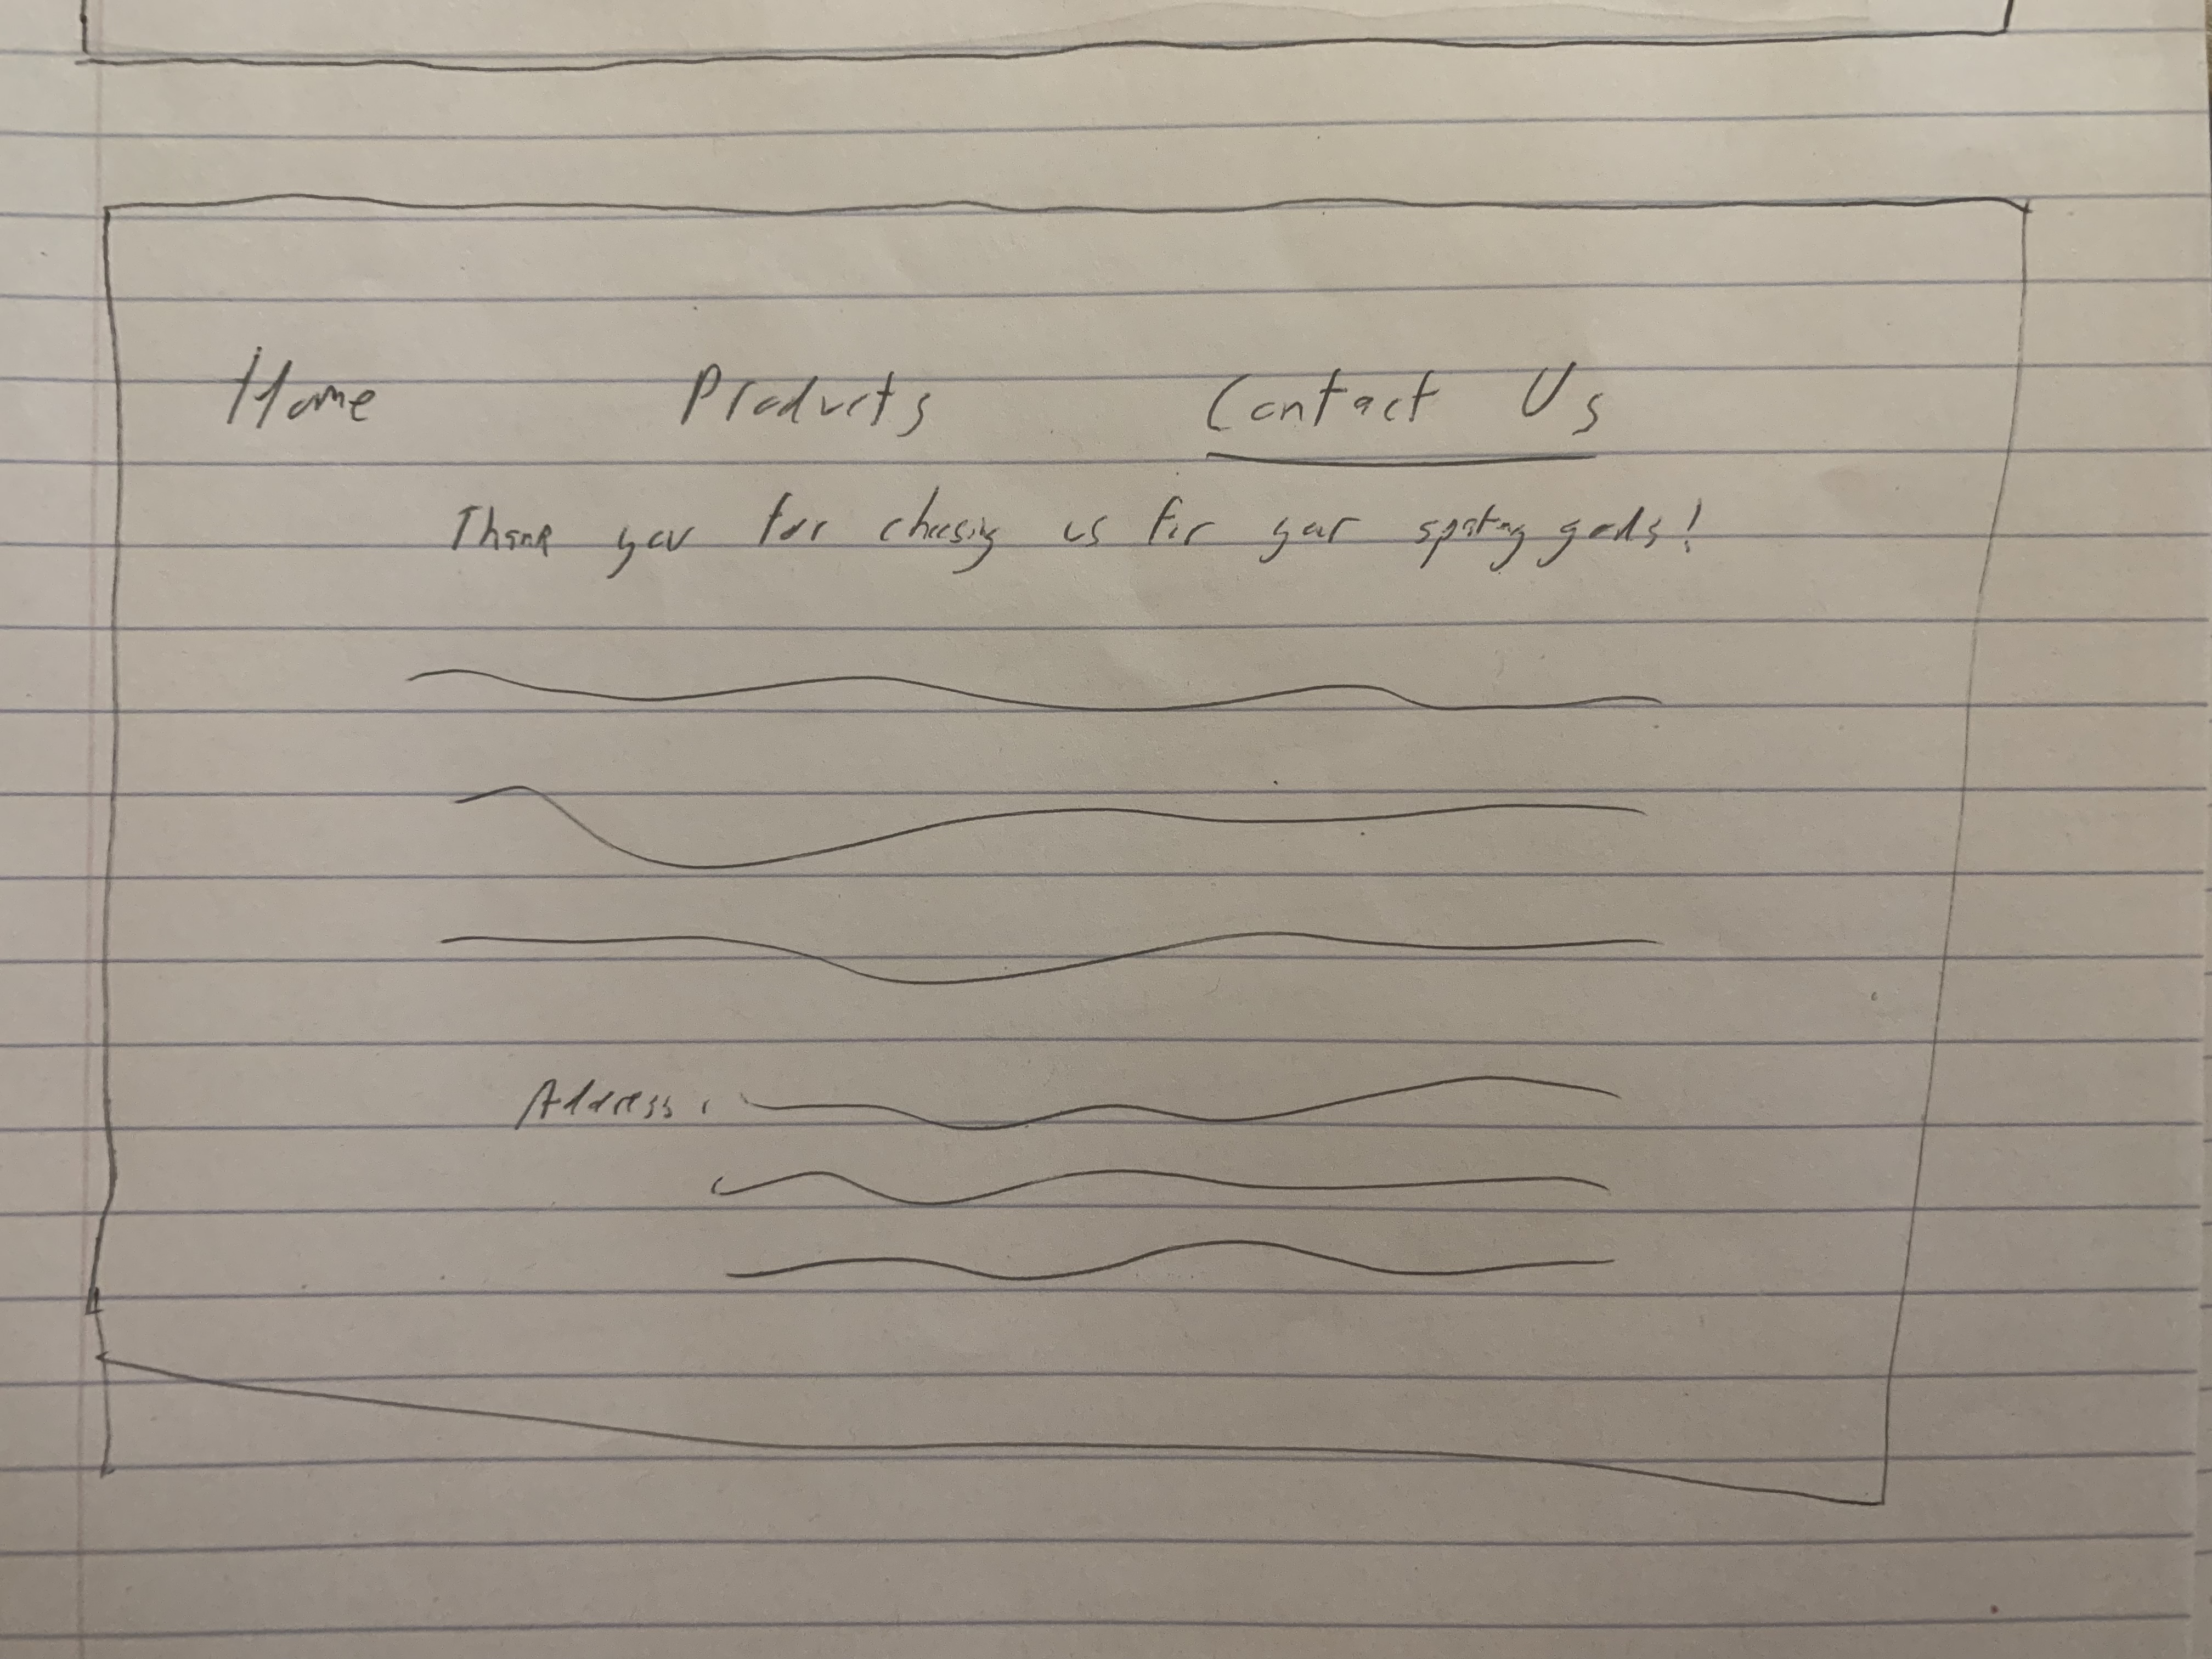 Home Products Contact Us
Thank you for choosing us for your sporting goods!
Address: